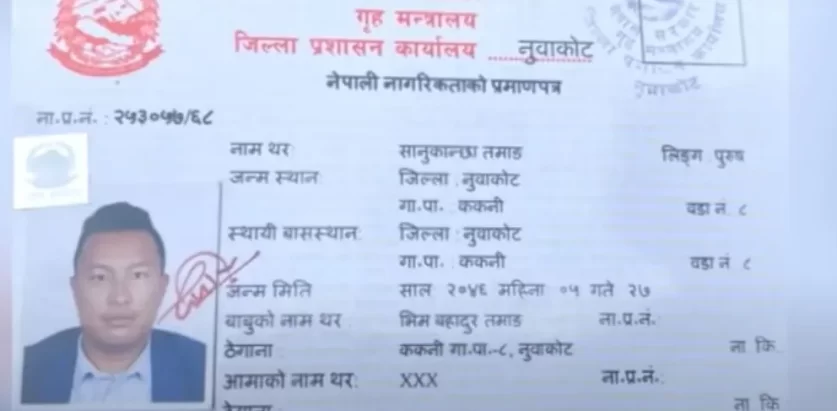 गृह मन्त्रालय
जिल्ला प्रशासन कार्यालय ......नुवाकोट
नेपाली नागरिकताको प्रमाणपत्र
ना.प्र.नं. : २५३०५७/६८
नाम थर: सानुकान्छा तमाङ लिङ्ग पुरुष
जन्म स्थान: जिल्ला : नुवाकोट
गा.पा. ककनी वडा नं. ८
स्थायी बासस्थान: जिल्ला : नुवाकोट
गा.पा. ककनी वडा नं ८
जन्म मिति साल २०४६ महिना ०५ गते २७
बाबुको नाम थर: भिम बहादुर तमाङ ना.प्र.नं.
ठेगाना ककनी गा.पा.-८, नुवाकोट ना कि.
आमाको नाम थर: XXX ना.प्र.नं.:
ठेगाना ना कि